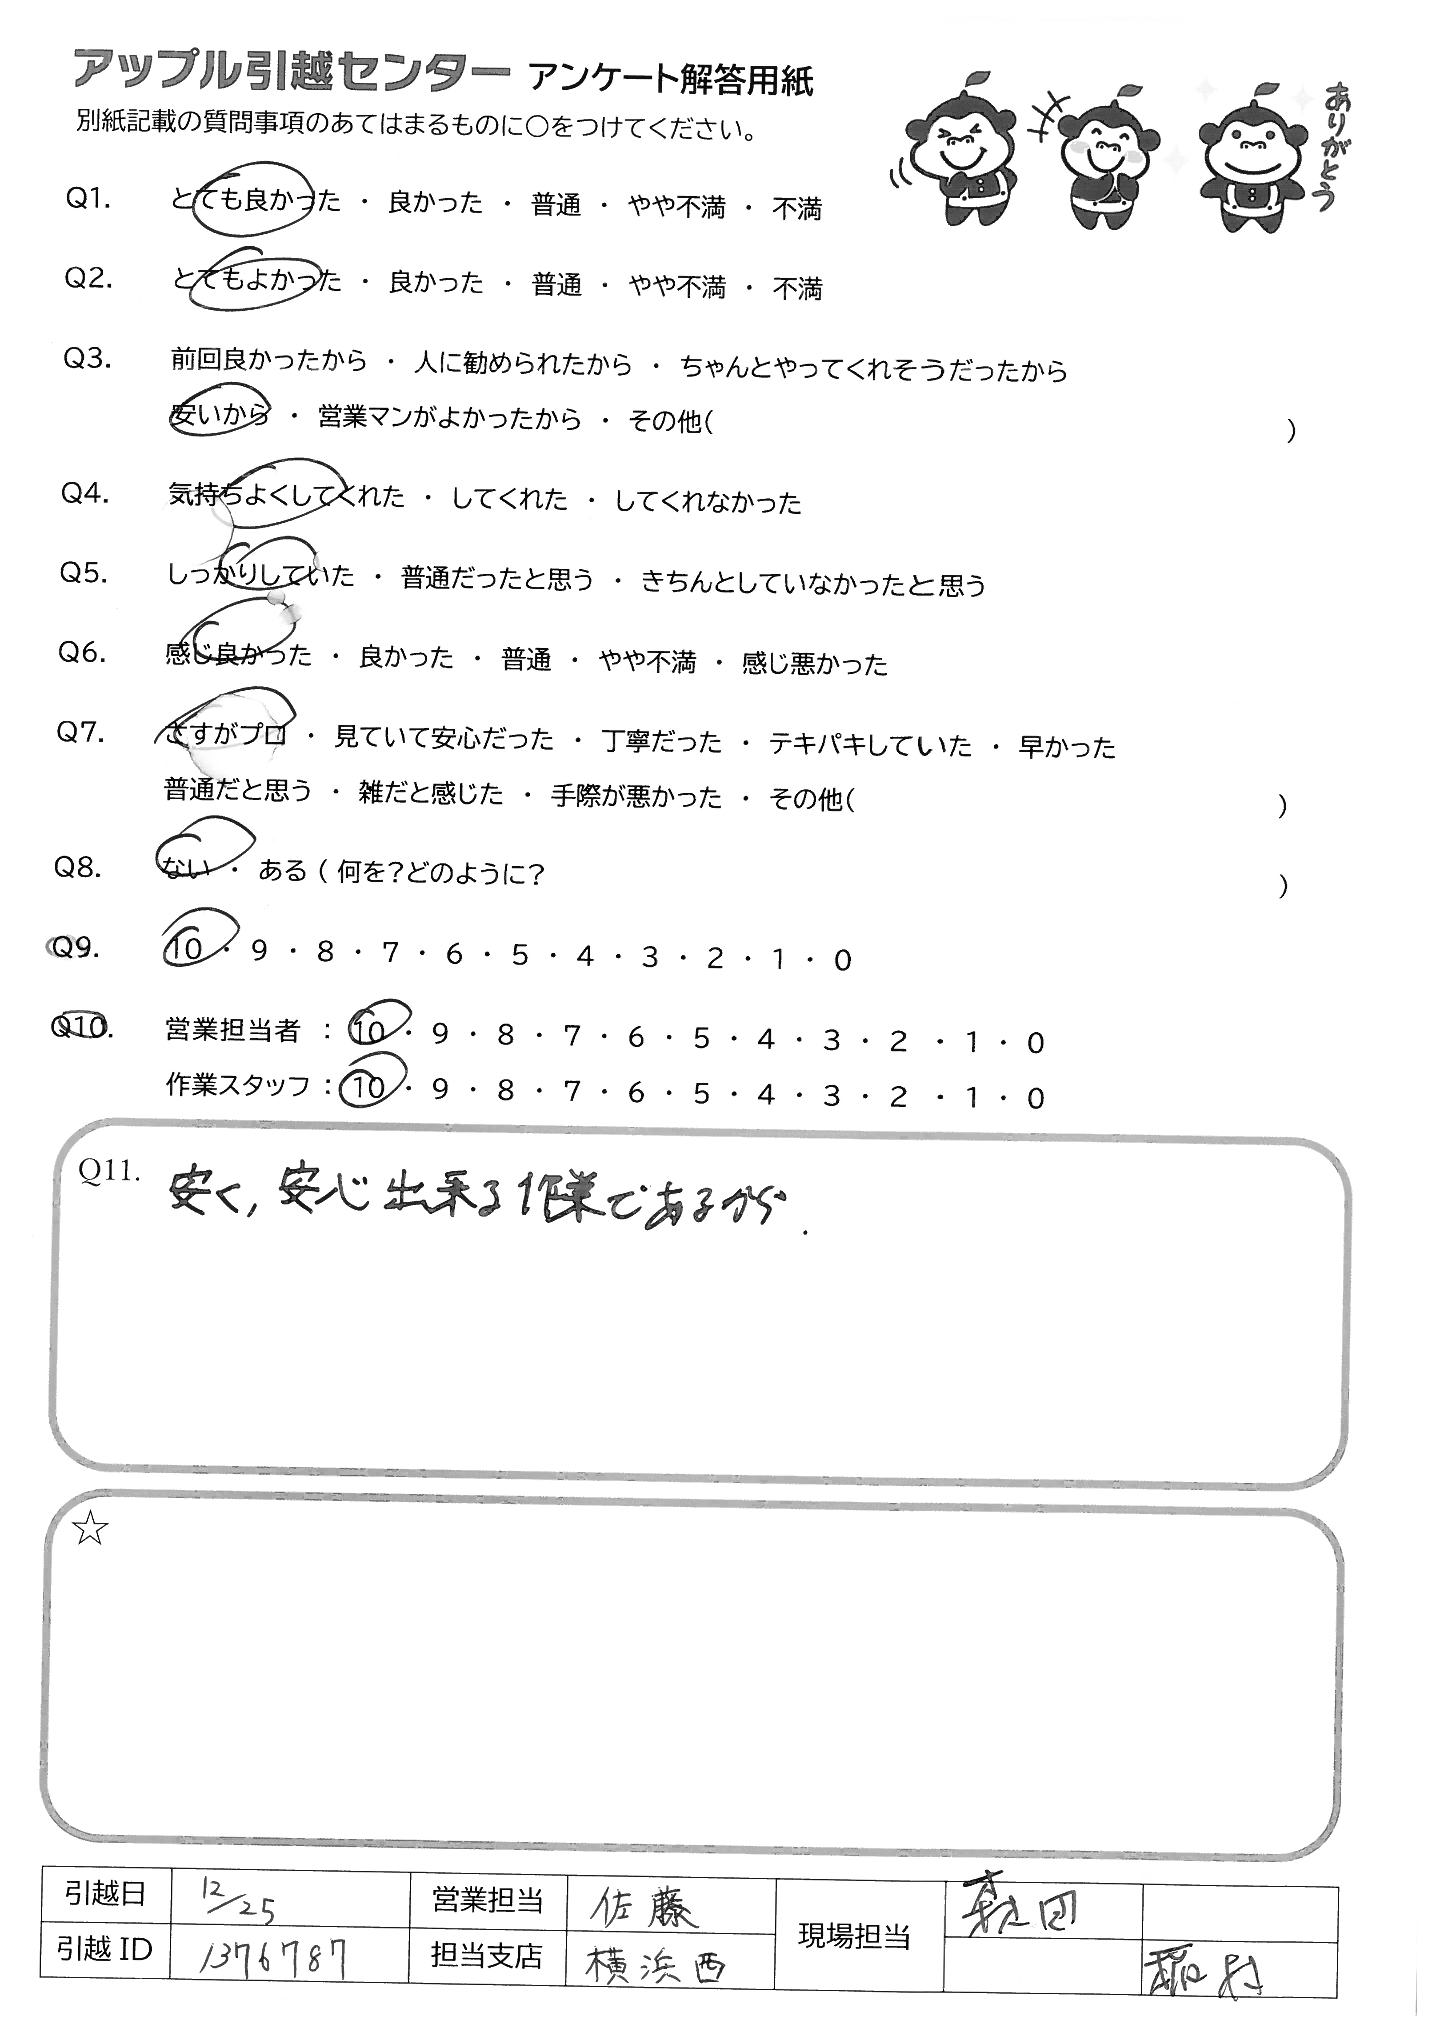 アップル引越センター アンケート解答用紙
ありがとう
別紙記載の質問事項のあてはまるものに○をつけてください。
Q1. とても良かった ・ 良かった ・ 普通 ・ やや不満 ・ 不満
Q2. とてもよかった ・ 良かった ・ 普通 ・ やや不満 ・ 不満
Q3. 前回良かったから ・ 人に勧められたから ・ ちゃんとやってくれそうだったから
安いから ・ 営業マンがよかったから ・ その他( )
Q4. 気持ちよくしてくれた ・ してくれた ・ してくれなかった
Q5. しっかりしていた ・ 普通だったと思う ・ きちんとしていなかったと思う
Q6. 感じ良かった ・ 良かった ・ 普通 ・ やや不満 ・ 感じ悪かった
Q7. さすがプロ ・ 見ていて安心だった ・ 丁寧だった ・ テキパキしていた ・ 早かった
普通だと思う ・ 雑だと感じた ・ 手際が悪かった ・ その他( )
Q8. ない ・ ある ( 何を?どのように? )
Q9. 10 ・ 9 ・ 8 ・ 7 ・ 6 ・ 5 ・ 4 ・ 3 ・ 2 ・ 1 ・ 0
Q10. 営業担当者 : 10 ・ 9 ・ 8 ・ 7 ・ 6 ・ 5 ・ 4 ・ 3 ・ 2 ・ 1 ・ 0
作業スタッフ : 10 ・ 9 ・ 8 ・ 7 ・ 6 ・ 5 ・ 4 ・ 3 ・ 2 ・ 1 ・ 0
Q11. 安く, 安心出来る作業であるから.
☆
引越日 12/25 営業担当 佐藤 現場担当
引越 ID 1376787 担当支店 横浜西 稲村